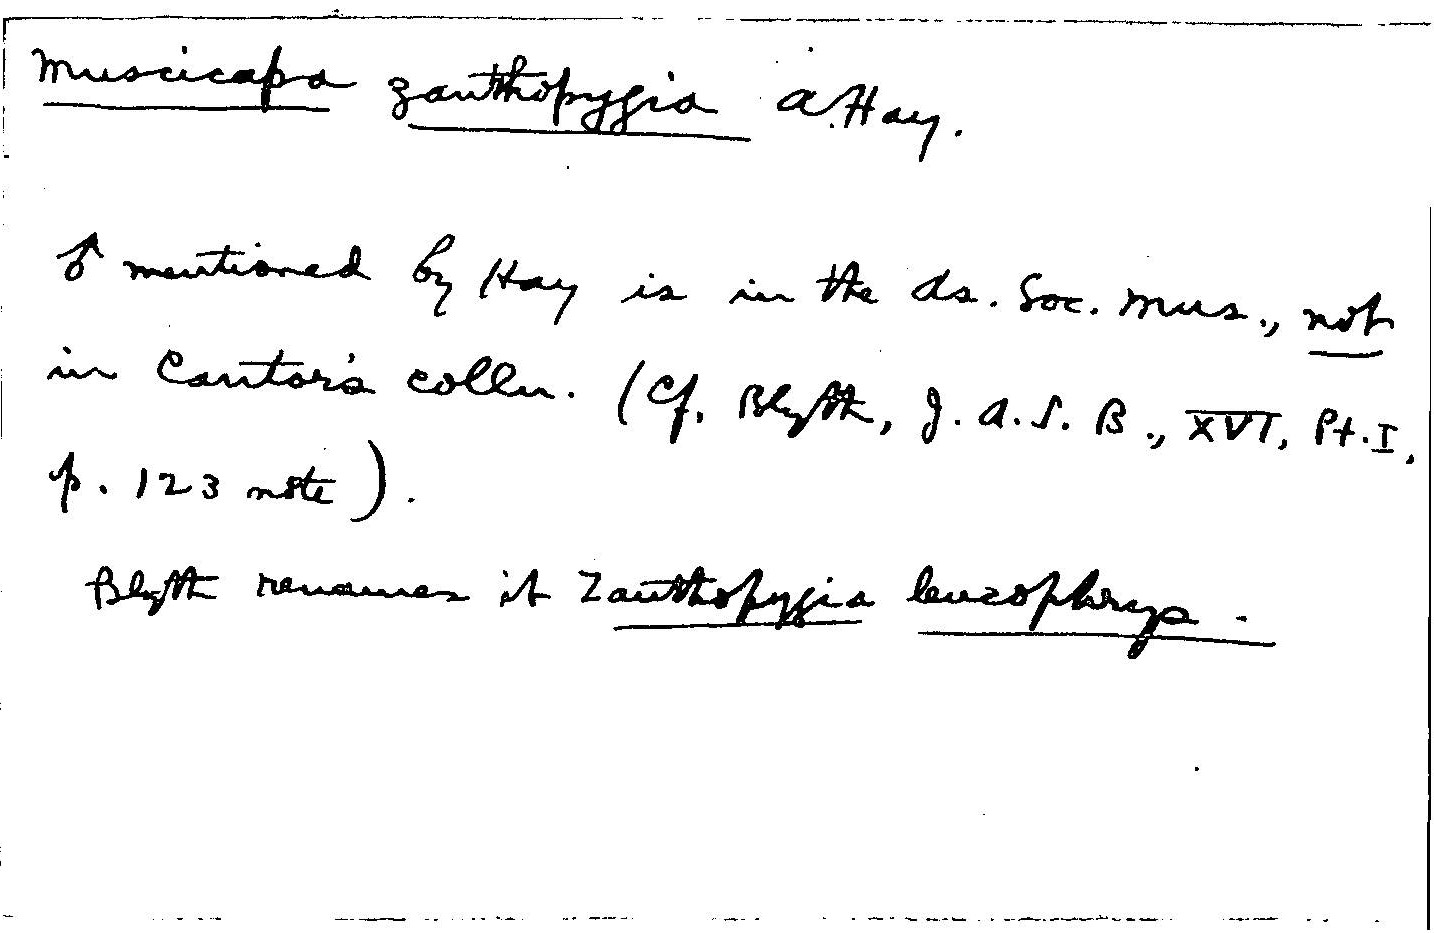 Muscicapa zanthopygia A. Hay.
♂ mentioned by Hay is in the As. Soc. Mus., not
in Cantor's colln. (Cf. Blyth, J. A. S. B., XVI, Pt. I,
p. 123 note).
Blyth renames it Zanthopygia leucophrys.